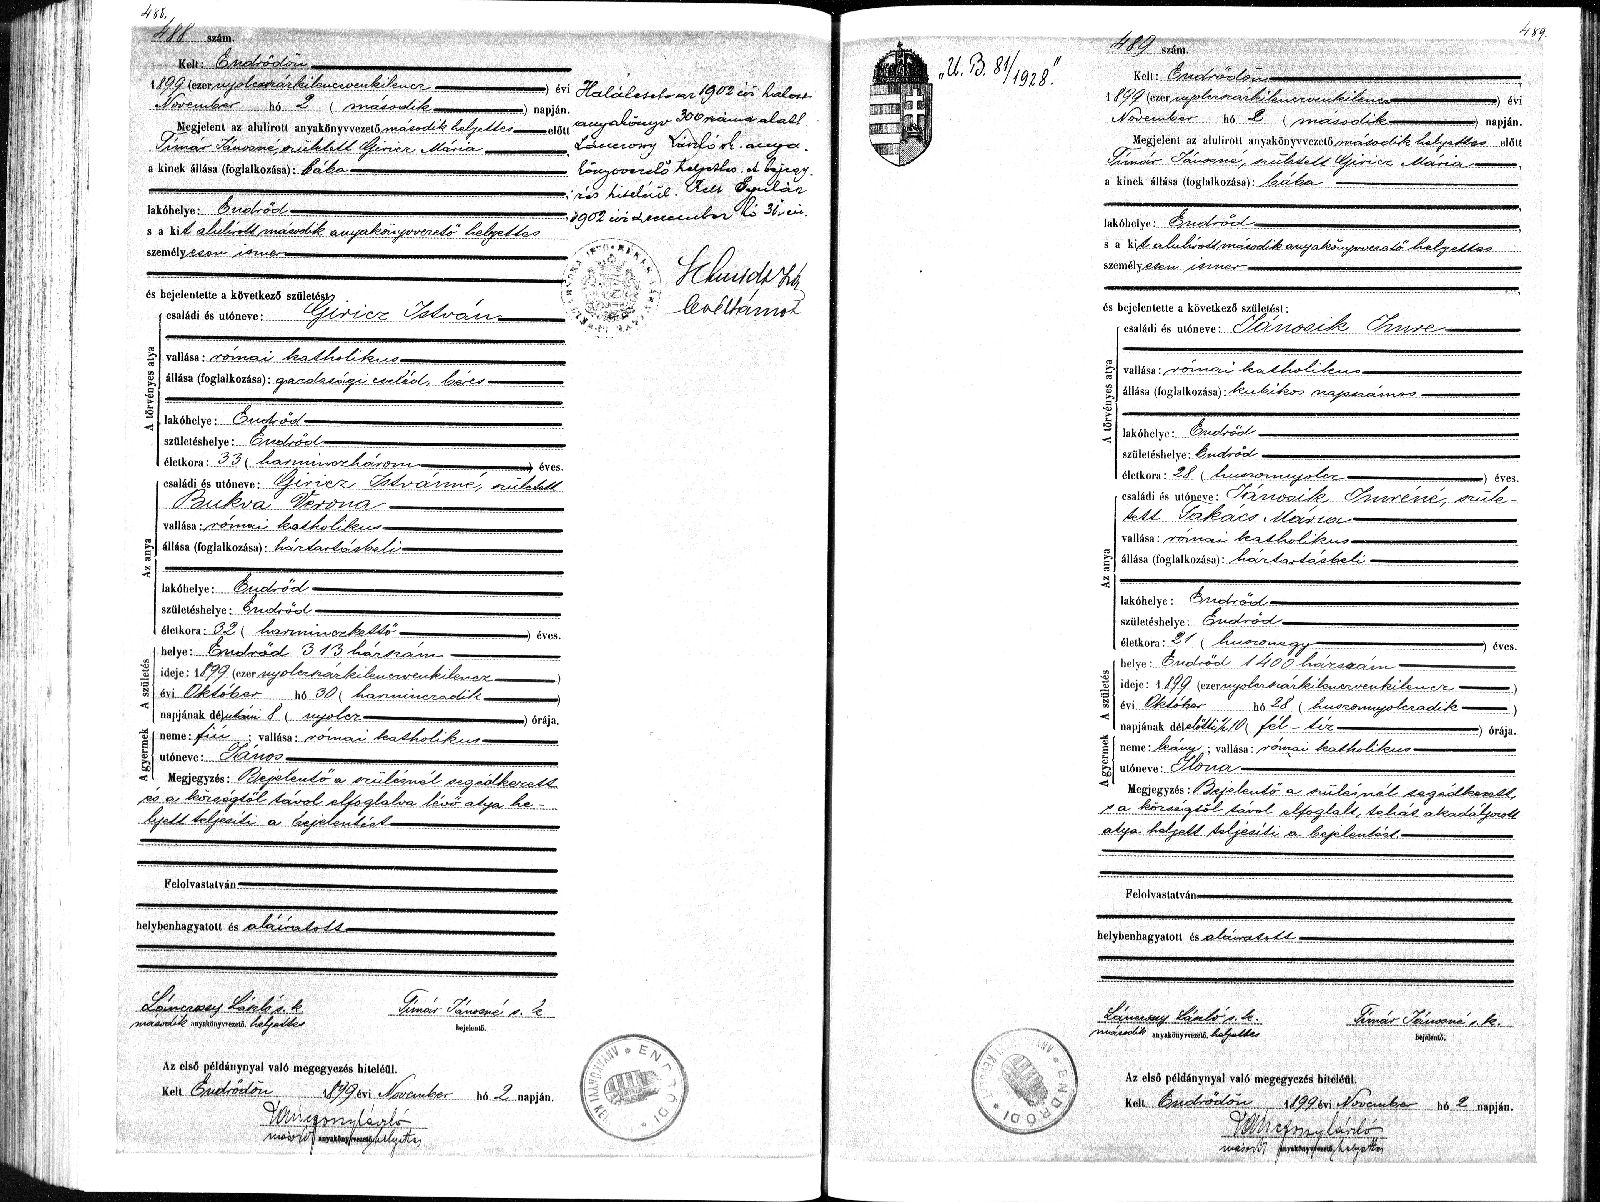 488.
488 szám.
Kelt: Endrődön
1899 (ezernyolczszázkilenczvenkilencz) évi
November hó 2 (második) napján.
Megjelent az alulirott anyakönyvvezető második helyettes előtt
Timár Jánosné, született Giricz Mária
a kinek állása (foglalkozása): bába
lakóhelye: Endrőd
s a kit alulirott második anyakönyvvezető helyettes
személyesen ismer
és bejelentette a következő születést:
A törvényes atya
családi és utóneve: Giricz István
vallása: római katholikus
állása (foglalkozása): gazdasági cseléd, béres
lakóhelye: Endrőd
születéshelye: Endrőd
életkora: 33 (harminczhárom) éves.
Az anya
családi és utóneve: Giricz Istvánné, született
Bukva Verona
vallása: római katholikus
állása (foglalkozása): háztartásbeli
lakóhelye: Endrőd
születéshelye: Endrőd
életkora: 32 (harminczkettő) éves.
A születés
helye: Endrőd 313 házszám
ideje: 1899 (ezernyolczszázkilenczvenkilencz)
évi Október hó 30 (harminczadik)
napjának délutáni 8 (nyolcz) órája.
A gyermek
neme: fiú; vallása: római katholikus
utóneve: János
Megjegyzés: Bejelentő a szülésnél segédkezett
és a községtől távol elfoglalva lévő atya he-
lyett teljesiti a bejelentést
Felolvastatván
helybenhagyatott és aláiratott
Lánczosy László s. k.
második anyakönyvvezető. helyettes
Timár Jánosné s. k.
bejelentő.
Az első példánynyal való megegyezés hiteléül.
Kelt Endrődön 1899 évi November hó 2 napján.
Lánczosy László
másod anyakönyvvezető helyettes
Haláleset az 1902 évi halotti
anyakönyv 300 száma alatt
Lánczosy László s. k. anya-
könyvvezető helyettes. A bejegy-
zés hiteléül. Kelt Gyulán
1902 évi December hó 31-én.
levéltárnok
ENDRŐDI
489.
„U. B. 81/1928."
489 szám.
Kelt: Endrődön
1899 (ezernyolczszázkilenczvenkilencz) évi
November hó 2 (második) napján.
Megjelent az alulirott anyakönyvvezető második helyettes előtt
Timár Jánosné, született Giricz Mária
a kinek állása (foglalkozása): bába
lakóhelye: Endrőd
s a kit alulirott második anyakönyvvezető helyettes
személyesen ismer
és bejelentette a következő születést:
A törvényes atya
családi és utóneve: Jánosik Imre
vallása: római katholikus
állása (foglalkozása): kubikos napszámos
lakóhelye: Endrőd
születéshelye: Endrőd
életkora: 28 (huszonnyolcz) éves.
Az anya
családi és utóneve: Jánosik Imréné, szüle-
tett Takács Mária
vallása: római katholikus
állása (foglalkozása): háztartásbeli
lakóhelye: Endrőd
születéshelye: Endrőd
életkora: 21 (huszonegy) éves.
A születés
helye: Endrőd 1400 házszám
ideje: 1899 (ezernyolczszázkilenczvenkilencz)
évi Október hó 28 (huszonnyolczadik)
napjának délelőtti ½10 (fél-tíz) órája.
A gyermek
neme: leány; vallása: római katholikus
utóneve: Ilona
Megjegyzés: Bejelentő a szülésnél segédkezett,
s a községtől távol elfoglalt, tehát akadályozott
atya helyett teljesiti a bejelentést
Felolvastatván
helybenhagyatott és aláiratott
Lánczosy László s. k.
második anyakönyvvezető. helyettes
Timár Jánosné s. k.
bejelentő.
Az első példánynyal való megegyezés hiteléül.
Kelt Endrődön 1899 évi November hó 2 napján.
Lánczosy László
másod anyakönyvvezető helyettes
ENDRŐDI